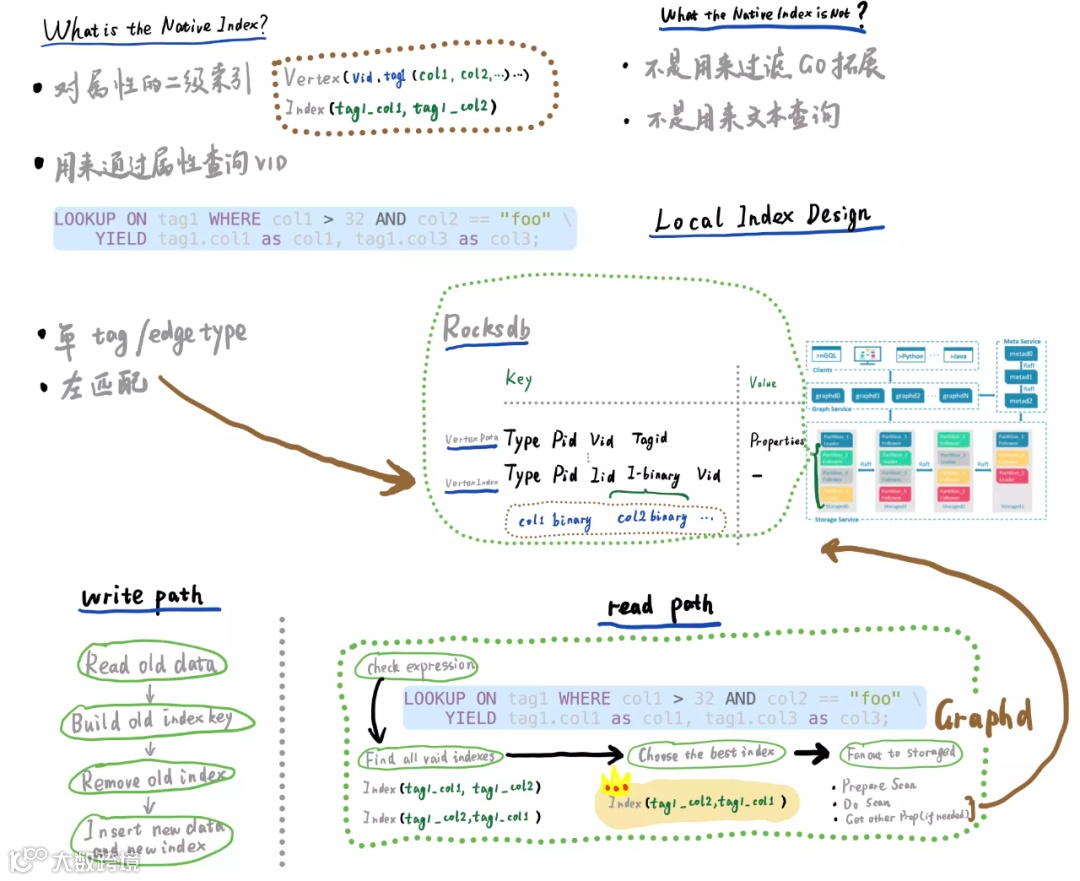 What is the Native Index?
• 对属性的二级索引
Vertex(vid, tag1 (col1, col2,…)…)
Index(tag1_col1, tag1_col2)
• 用来通过属性查询VID
LOOKUP ON tag1 WHERE col1 > 32 AND col2 == "foo" \
YIELD tag1.col1 as col1, tag1.col3 as col3;
• 单 tag/edge type
• 左匹配
What the Native Index is Not?
• 不是用来过滤 GO 拓展
• 不是用来文本查询
Local Index Design
Rocksdb
Key
Value
Vertex Data
Type Pid Vid Tagid
Properties
Vertex Index
Type Pid Iid I-binary Vid
–
col1 binary col2 binary …
>nGQL
>Python
…
>Java
Clients
graphd0
graphd1
graphd2
…
graphdN
Graph Service
Meta Service
metad0
Raft
metad1
Raft
metad2
Raft
Raft
Raft
Storage Service
write path
Read old data
Build old index key
Remove old index
Insert new data
and new index
read path
check expression
LOOKUP ON tag1 WHERE col1 > 32 AND col2 == "foo" \
YIELD tag1.col1 as col1, tag1.col3 as col3;
Graphd
Find all vaid indexes
Choose the best index
Fan out to storaged
Index(tag1_col1, tag1_col2)
Index(tag1_col2,tag1_col1)
Index(tag1_col2,tag1_col1)
• Prepare Scan
• Do Scan
• Get other Prop(if needed)
大数跨境